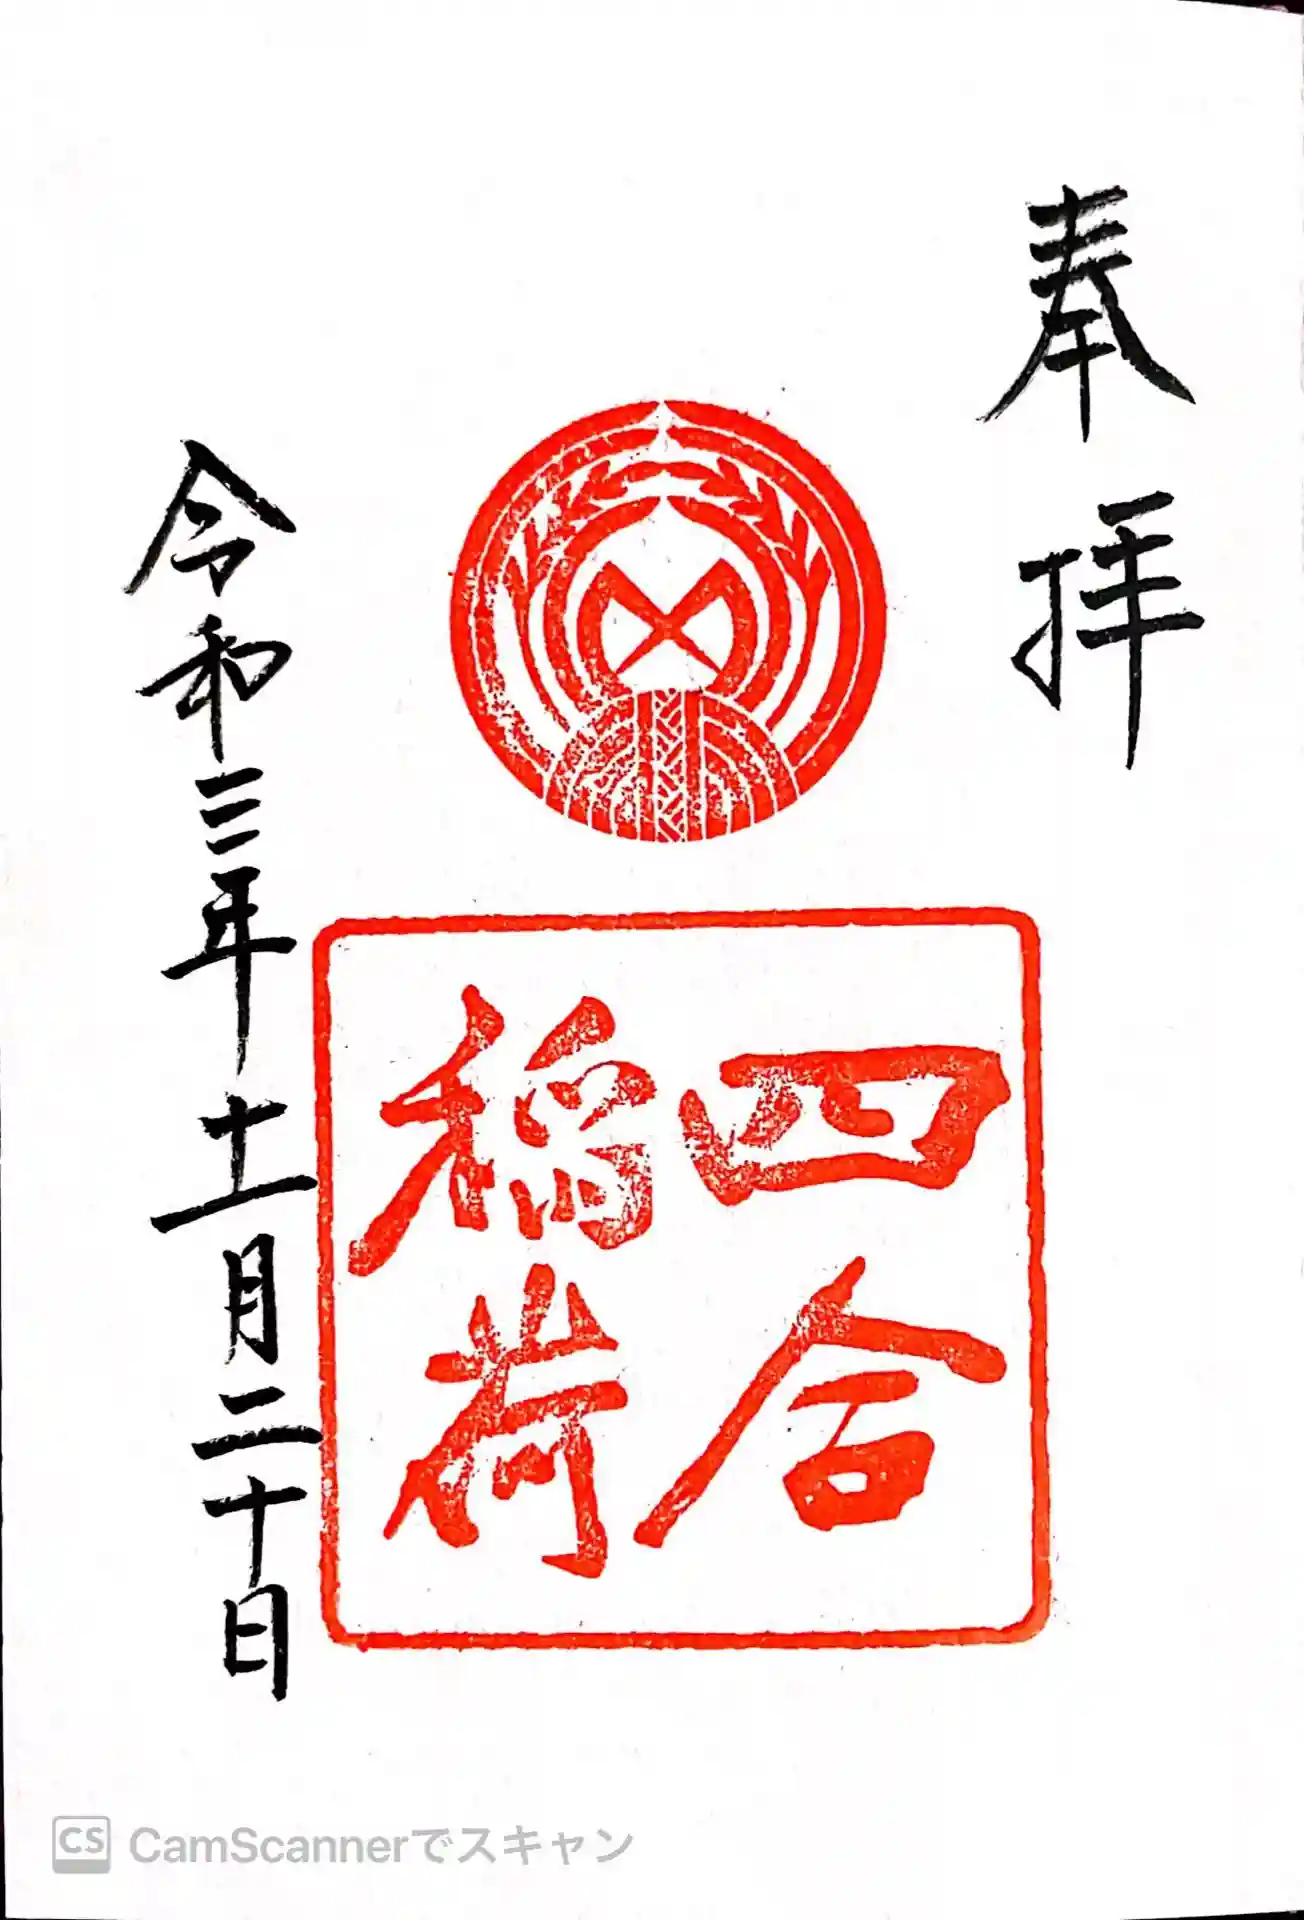 奉拝
四合
稲荷
令和三年十一月二十日
CS CamScannerでスキャン